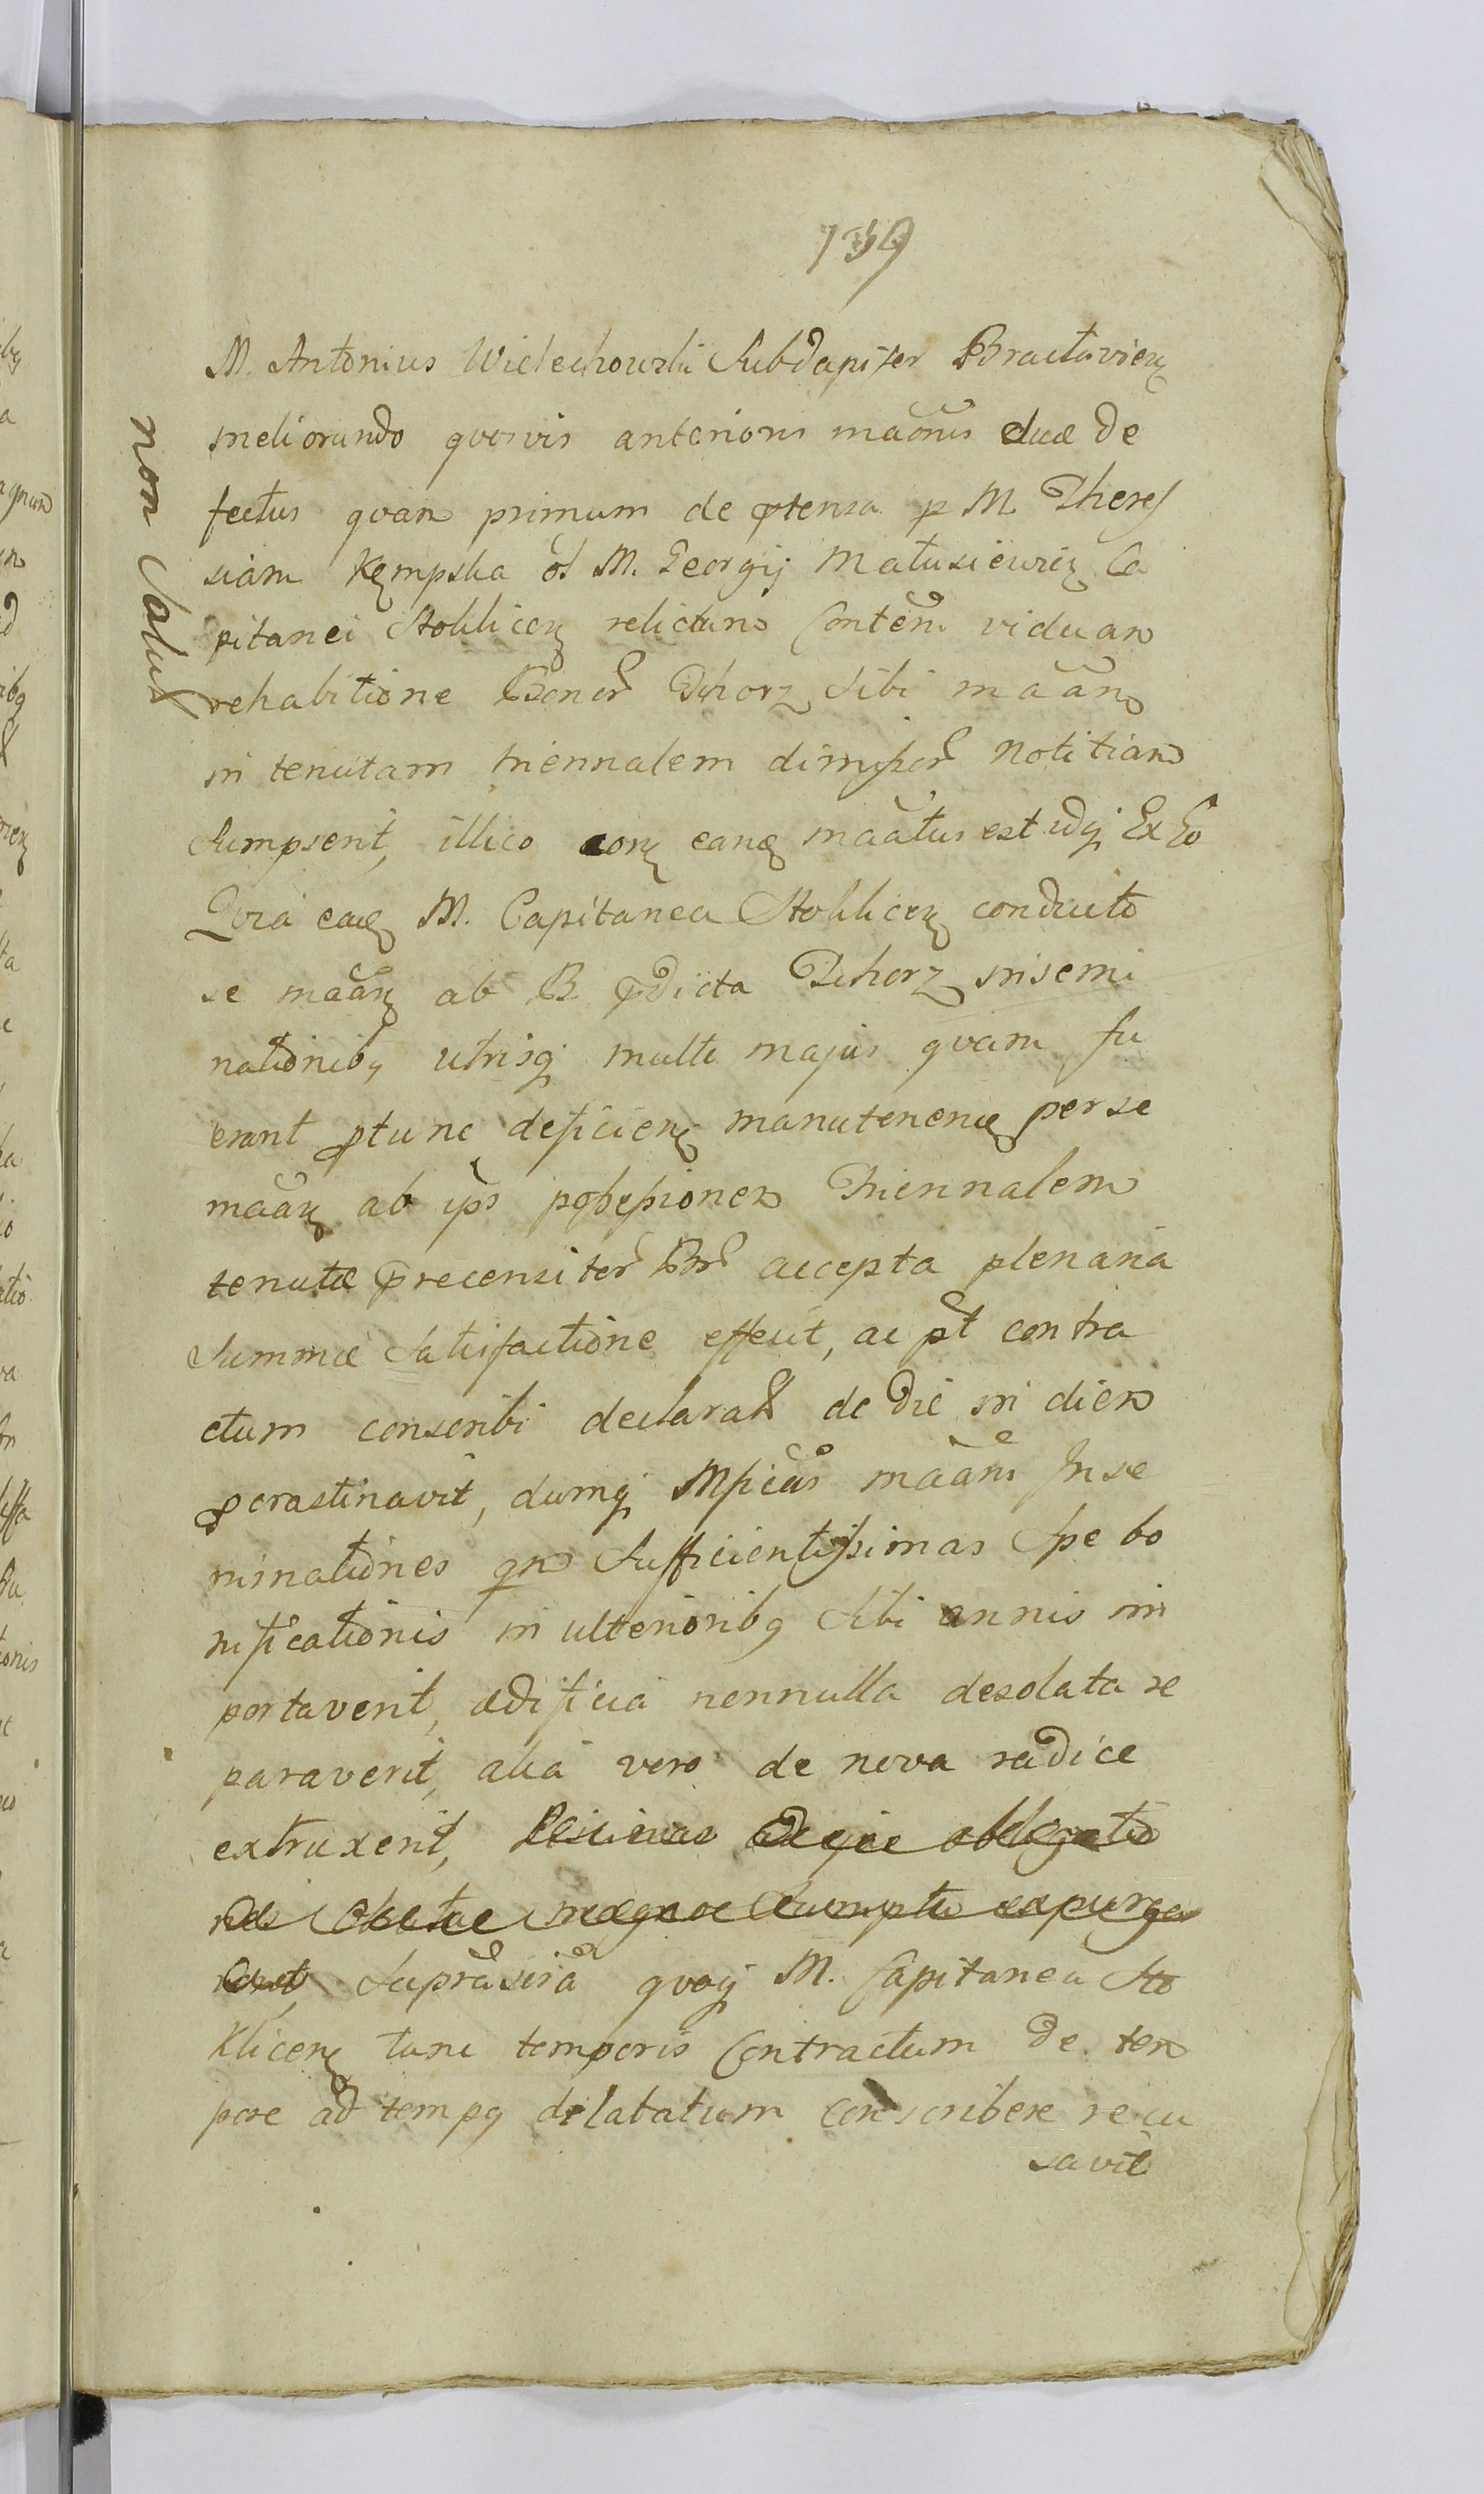 139
non Valet
M. Antonius Wielechowski Subdapifer Bractavien
meliorando quosvis anterioris maõnis suæ de
fectus quam primum de prtensa p M. There
siam Kempska ol M. Georgij Matusiewicz Ca
pitanei Stoklicen relictam Contem viduam
rehabitione Bonor Tchorz Sibi maan
in tenutam triennalem dimissor notitiam
Sumpserit, illico coram eand maatus est idq Ex Eo
Quia ead M. Capitanea Stoklicen conducto
se maan ab B prdicta Tchorz insemi
nationibq utrisq multo majus quam fu
erant ptunc deficien manutenend per se
maan ab ips possessionem Triennalem
tenutæ precensitor Bor accepta plenaria
Summæ Satisfactione effecit, ac pt contra
ctum conscribi declarat de die in diem
procrastinavit, dumq Mficus maans Inse
minationes qm Sufficientissimas Spe bo
nificationis in ulterioribq Sibi annis im
portaverit, ædificia nonnulla desolata re
paraverit, alia vero de nova radice
extruxerit, Piscinas
magno Sumptu expurga
verit, Suprasira quoq M. Capitanea Sto
klicen tunc temporis Contractum de tem
pore ad tempq dilatatum conscribere recu
savit